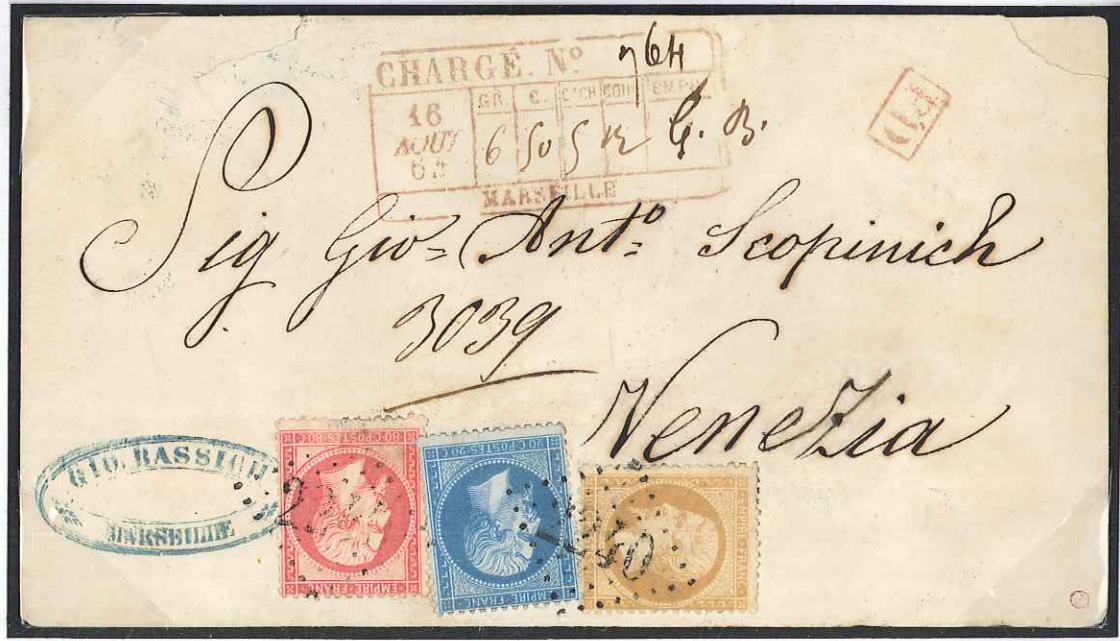 CHARGÉ. Nº 764
GR. C. EMPR
16 AOUT 64
6 50 5 12 G. B.
MARSEILLE
PD
Sig Gio= Antº= Scopinich
3039
Venezia
GIO. BASSICH
MARSEILLE
80 C POSTES 80 C
EMPIRE FRANC
20 C POSTES 20 C
EMPIRE FRANC
EMPIRE FRANC
2240